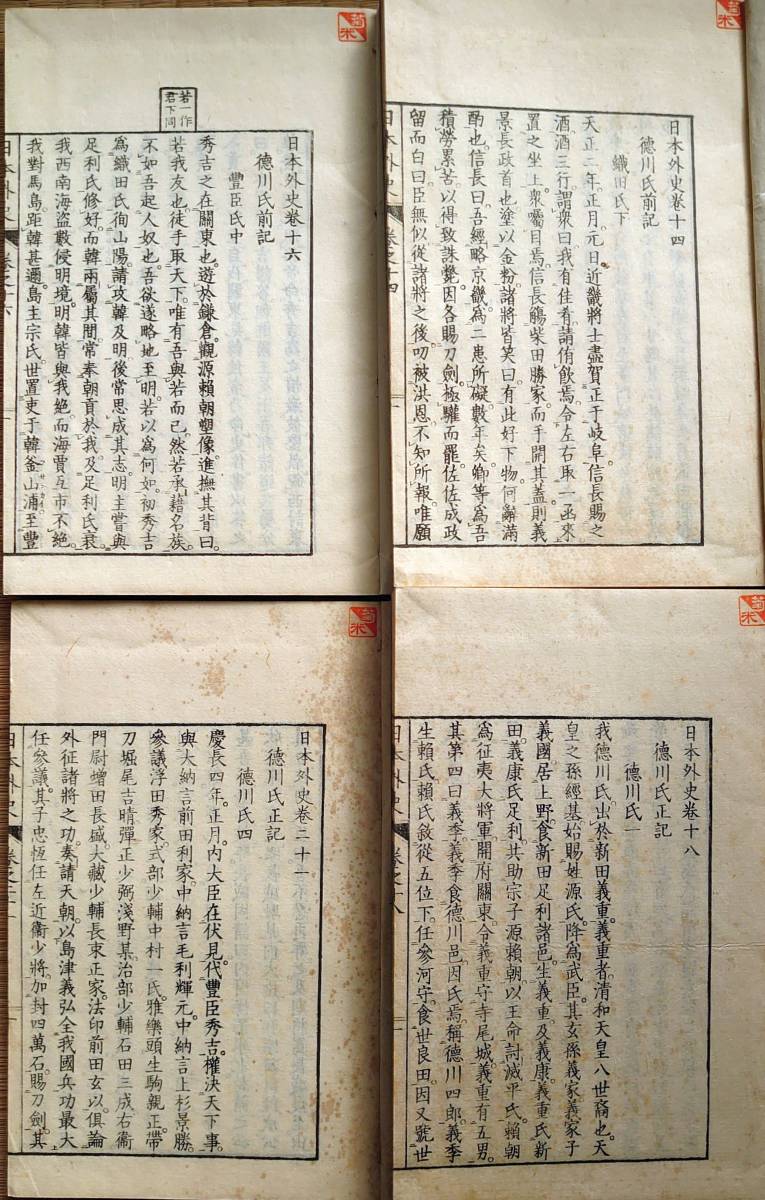 日本外史卷十四
德川氏前記
織田氏下
天正二年。正月。元日。近畿將士盡賀正于岐阜。信長賜之
酒。酒三行。謂衆曰。我有佳肴。請侑飲焉。令左右取一函來。
置之坐上。衆囑目焉。信長觴柴田勝家。而手開其蓋。則義
景長政首也。塗以金粉。諸將皆笑曰。有此好下物。何辭滿
酌也。信長曰。吾經略京畿。爲二患所礙。數年矣。卿等爲吾
積勞累苦。以得致誅斃。因各賜刀劍。極驩而罷。佐佐成政
留而白曰。臣無似從諸將之後。叨被洪恩。不知所報。唯願
若一作
君下同
日本外史卷十六
德川氏前記
豐臣氏中
秀吉之在關東也。遊於鎌倉。觀源賴朝塑像。進撫其背曰。
若我友也。徒手取天下。唯有吾與若而已。然若承藉名族。
不如吾起人奴也。吾欲遂略地至明。若以爲何如。初秀吉
爲織田氏徇山陽。請攻韓及明。後常思成其志。明主嘗與
足利氏修好。而韓兩屬其間。常奉朝貢於我。及足利氏衰。
我西南海盜數侵明境。明韓皆與我絕。而海賈互市不絕。
我對馬島。距韓甚邇。島主宗氏。世置吏于韓釜山浦。至豐
日本外史 卷之十六
日本外史卷十八
德川氏正記
德川氏一
我德川氏。出於新田義重。義重者。清和天皇八世裔也。天
皇之孫經基。始賜姓源氏。降爲武臣。其玄孫義家。義家子
義國。居上野。食新田足利諸邑。生義重。及義康。義重氏新
田。義康氏足利。共助宗子源賴朝。以王命討滅平氏。賴朝
爲征夷大將軍。開府關東。令義重守寺尾城。義重有五男。
其第四曰義季。義季食德川邑。因氏焉。稱德川四郎。義季
生賴氏。賴氏敘從五位下。任參河守。食世良田。因又號世
日本外史 卷之十八
日本外史卷二十一
德川氏正記
德川氏四
慶長四年。正月。內大臣在伏見。代豐臣秀吉。權決天下事。
與大納言前田利家。中納言毛利輝元。中納言上杉景勝。
參議浮田秀家。式部少輔中村一氏。雅樂頭生駒親正。帶
刀堀尾吉晴。彈正少弼淺野某。治部少輔石田三成。右衞
門尉增田長盛。大藏少輔長束正家。法印前田玄以。俱論
外征諸將之功。奏請天朝。以島津義弘全我國兵功最大
任參議。其子忠恆任左近衞少將。加封四萬石。賜刀劍。其